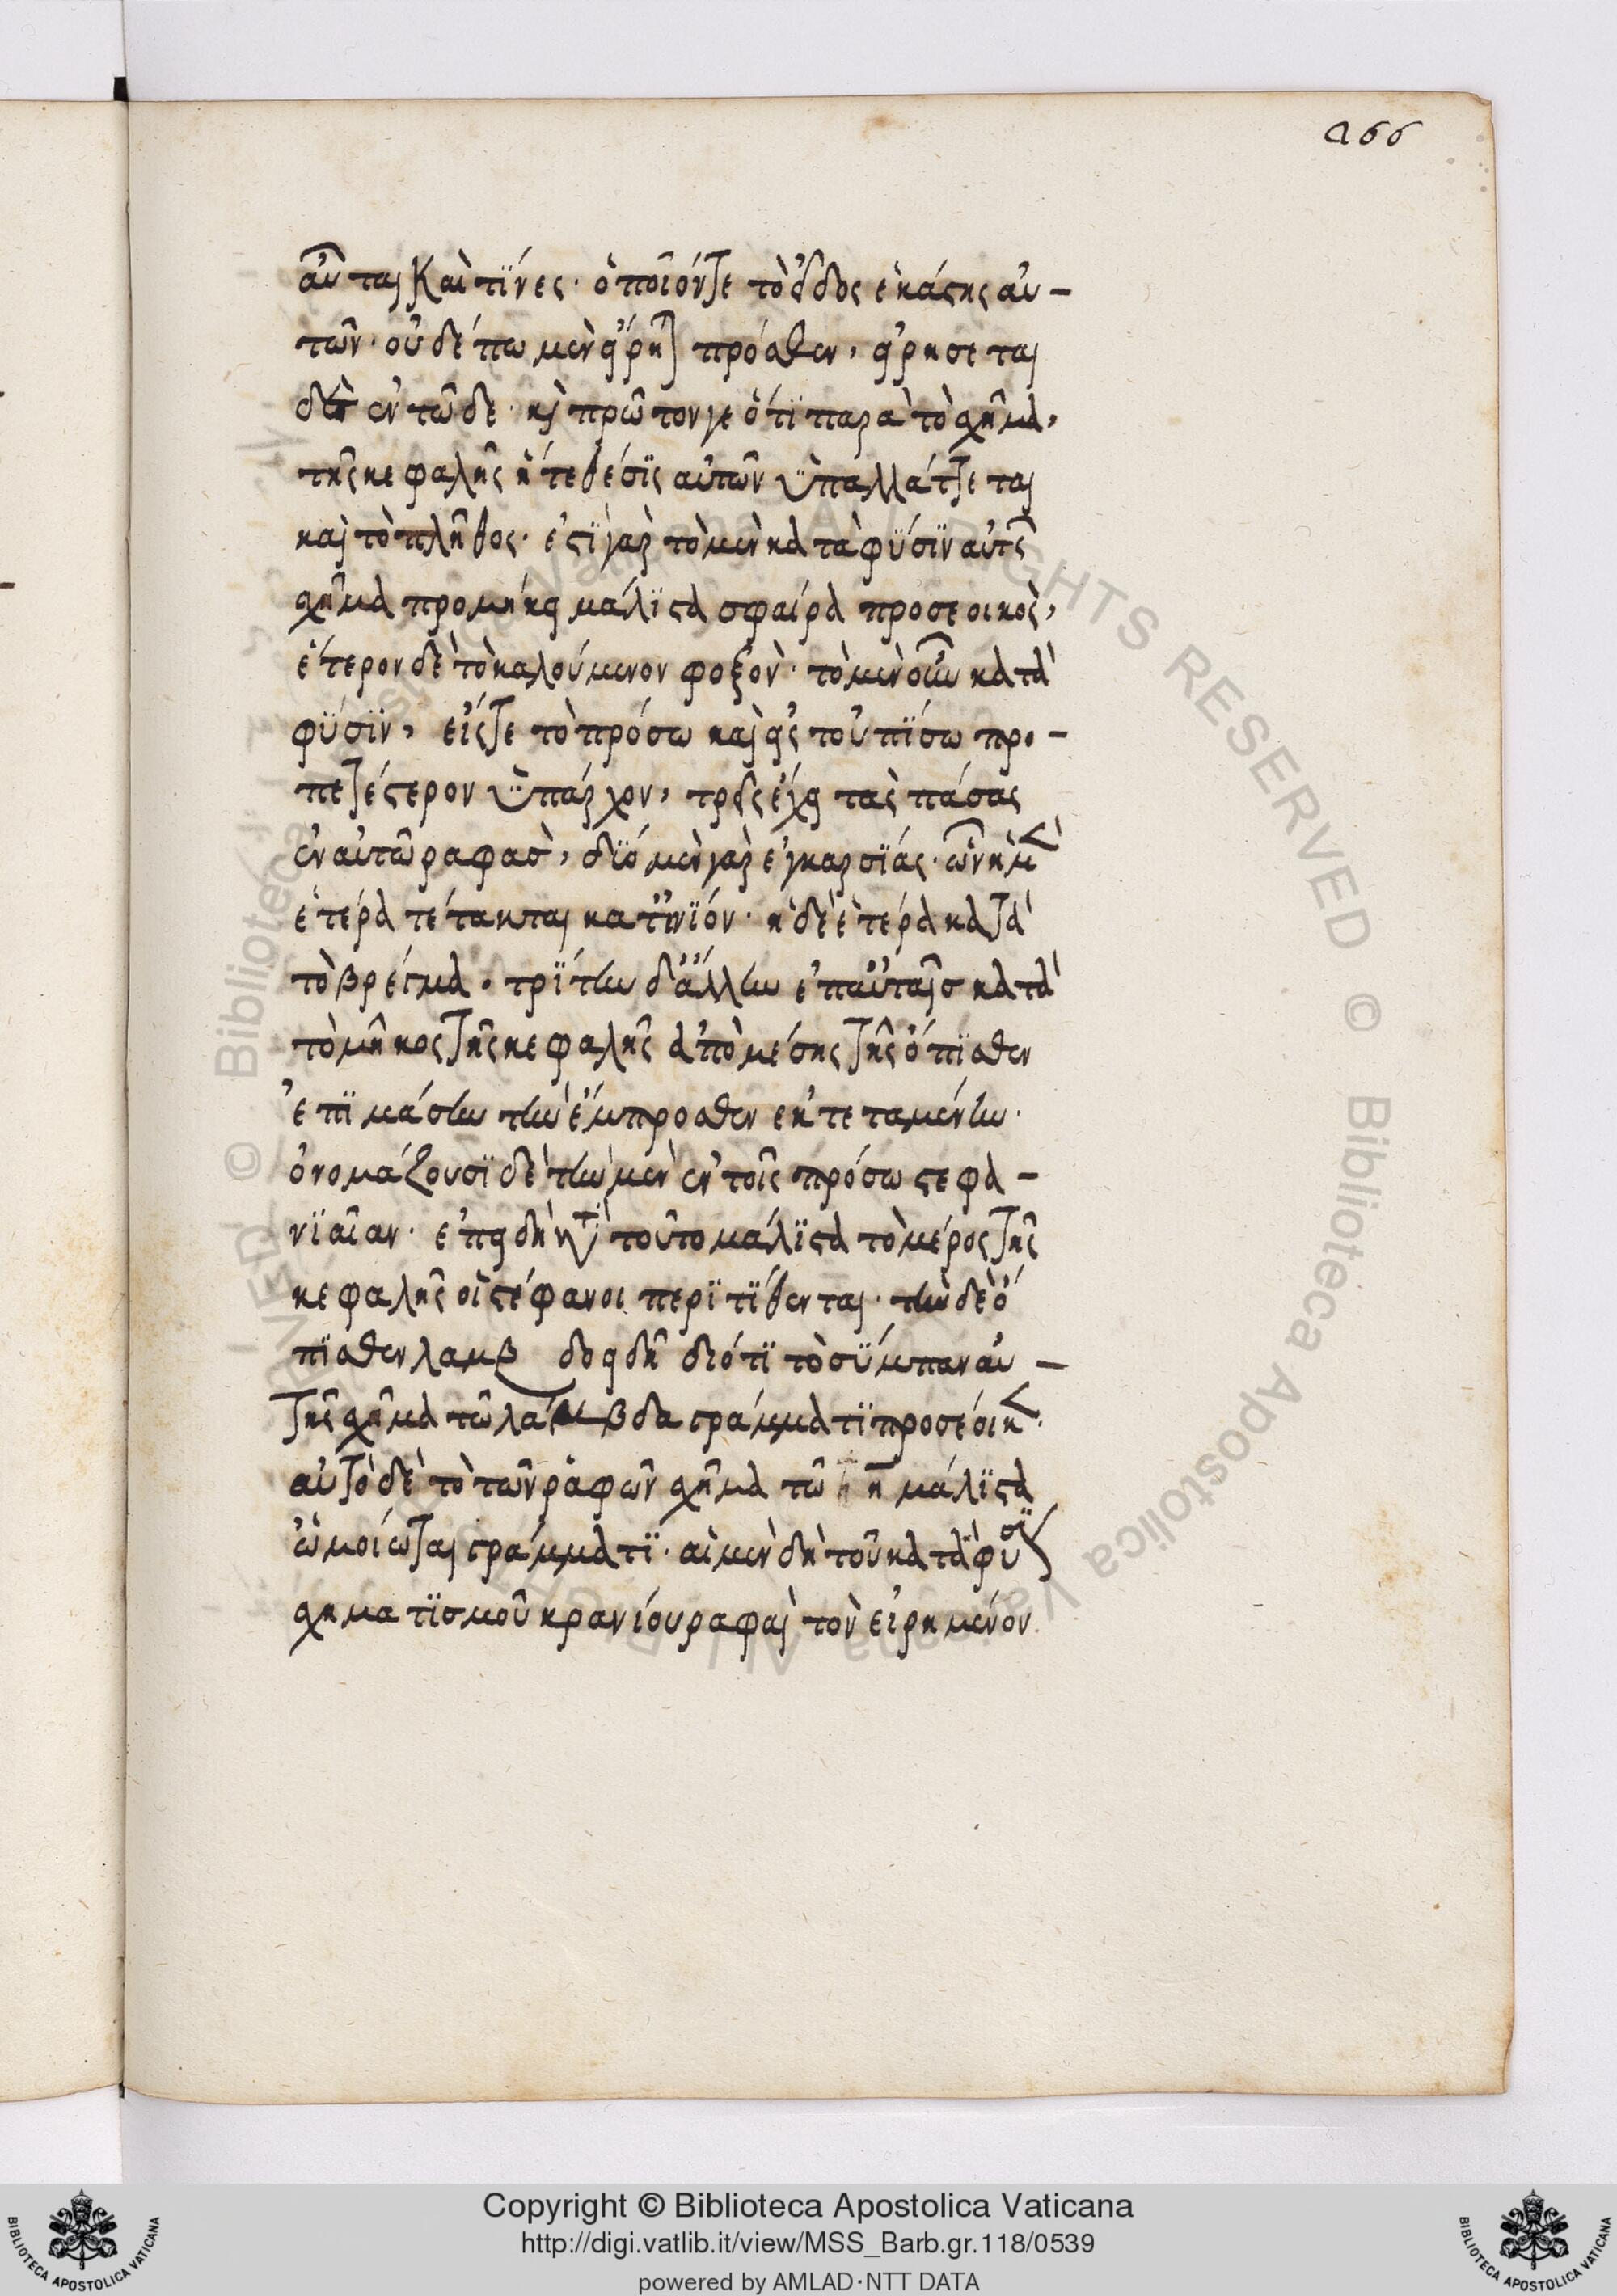 266
αὗται καὶ τϊνες· ὁποῖόν τε τὸ εἶδος ἑκάστης αὐ-
τῶν· οὐδέπω μὲν εἴρηται πρόσθεν, εἰρήσεται
δὲ ἐν τῶδε· καὶ πρῶτον γε ὅτϊ παρὰ τὸ σχῆμα,
τῆς κεφαλῆς ἥ τε θέσϊς αὐτῶν ϋπαλλάττεται
καὶ τὸ πλῆθος· ἐστϊ γὰρ τὸ μὲν κατὰ φϋσϊν αὐτῆς
σχῆμα προμήκει μάλϊστα σφαίρα προσεοικὸς,
ἕτερον δὲ τὸ καλούμενον φοξὸν· τὸ μὲν οὖν κατὰ
φϋσϊν, εἴς τε τὸ πρόσω καὶ εἰς τοὐπϊσω προ-
πετέστερον ϋπάρχον, τρεῖς ἔχει τὰς πάσας
ἐν αὐτῶ ραφάσ, δϊό μὲν γὰρ ἐγκαρσϊάς· ὧν ἡ μὲν
ἑτέρα τέτακται κατ' ἰνϊόν· ἡ δὲ ἑτέρα κατὰ
τὸ βρέγμα· τρϊτην δ' ἄλλην ἐπ' αὐταῖσ κατὰ
τὸ μῆκος τῆς κεφαλῆς ἀπὸ μέσης τῆς ὄπϊσθεν
ἐπϊ μάσην τὴν ἔμπροσθεν ἐκτεταμένην·
ὀνομάζουσϊ δὲ τὴν μὲν ἐν τοῖς πρόσω στεφα-
νϊαῖαν· ἐπειδὴ κατὰ τοῦτο μάλϊστα τὸ μέρος τῆς
κεφαλῆς οἱ στέφανοι περϊτϊθενται· τὴν δὲ ὄ
πϊσθεν λαμβδοειδῆ διότϊ τὸ σϋμπαν αὐ-
τῆς σχῆμα τῶ λάμβδα γράμματϊ προσέοικεν·
αὐτὸ δὲ τὸ τῶν ῥαφῶν σχῆμα τῶ η μάλϊστα
ὡμοίωται γράμματϊ· αἱ μὲν δὴ τοῦ κατὰ φϋσϊν
σχηματϊσμοῦ κρανίου ραφαὶ τὸν εἰρημένον

Copyright © Biblioteca Apostolica Vaticana
http://digi.vatlib.it/view/MSS_Barb.gr.118/0539
powered by AMLAD·NTT DATA